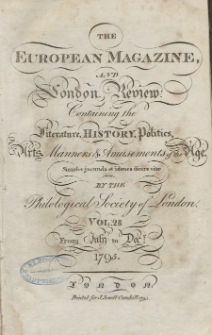 THE
EUROPEAN MAGAZINE,
AND
London Review:
Containing the
Literature, HISTORY, Politics,
Arts, Manners & Amusements of the Age.
Simul et jucunda et idonea dicere vitæ
BY THE
Philological Society of London,
VOL. 28
From July to Decr.
1795.
LONDON
Printed for J. Sewell Cornhill 1795.